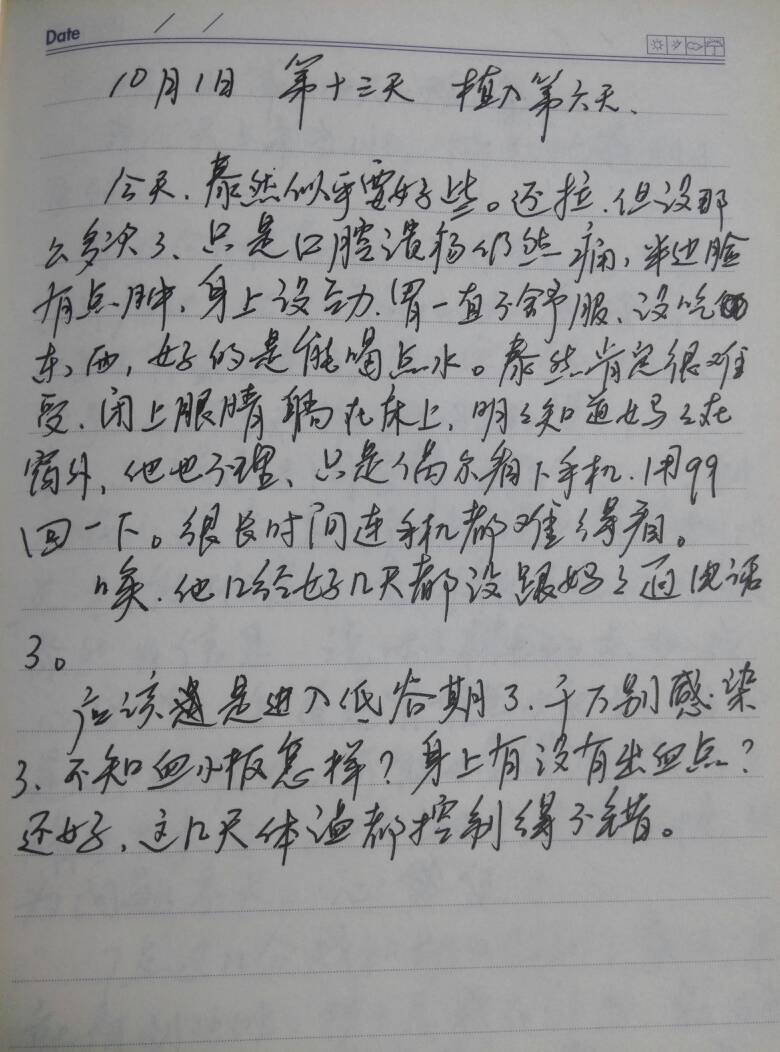 Date / /
10月1日 第十三天 植入第六天、
今天、泰然似乎要好些。还拉、但没那
么多次了、只是口腔溃疡仍然痛、半边脸
有点肿、身上没劲、胃一直不舒服、没吃
东西，好的是能喝点水。泰然肯定很难
受、闭上眼睛躺在床上、明明知道妈妈在
窗外，他也不理、只是偶尔看下手机、用QQ
回一下。很长时间连手机都难得看。
唉、他已经好几天都没跟妈妈通电话
了。
应该是进入低谷期了、千万别感染
了、不知血小板怎样？身上有没有出血点？
还好、这几天体温都控制得不错。